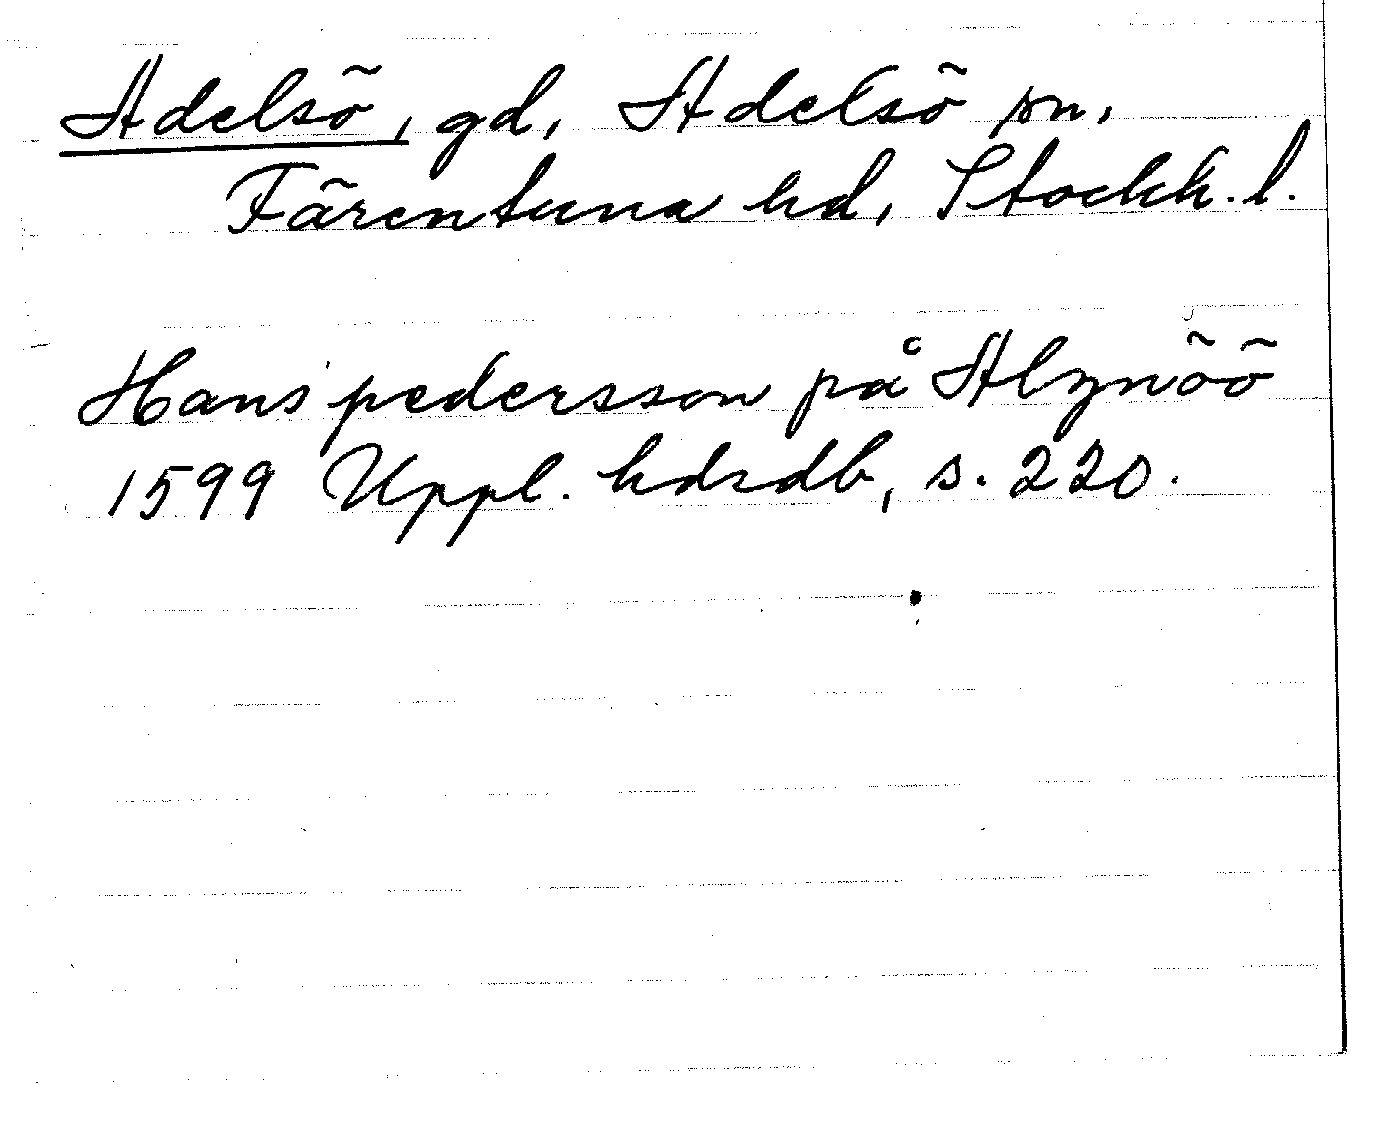 Adelsö, gd, Adelsö sn,
Färentuna hd, Stockh. l.
Hans pedersson på Alznöö
1599 Uppl. hdrdb, s. 220.